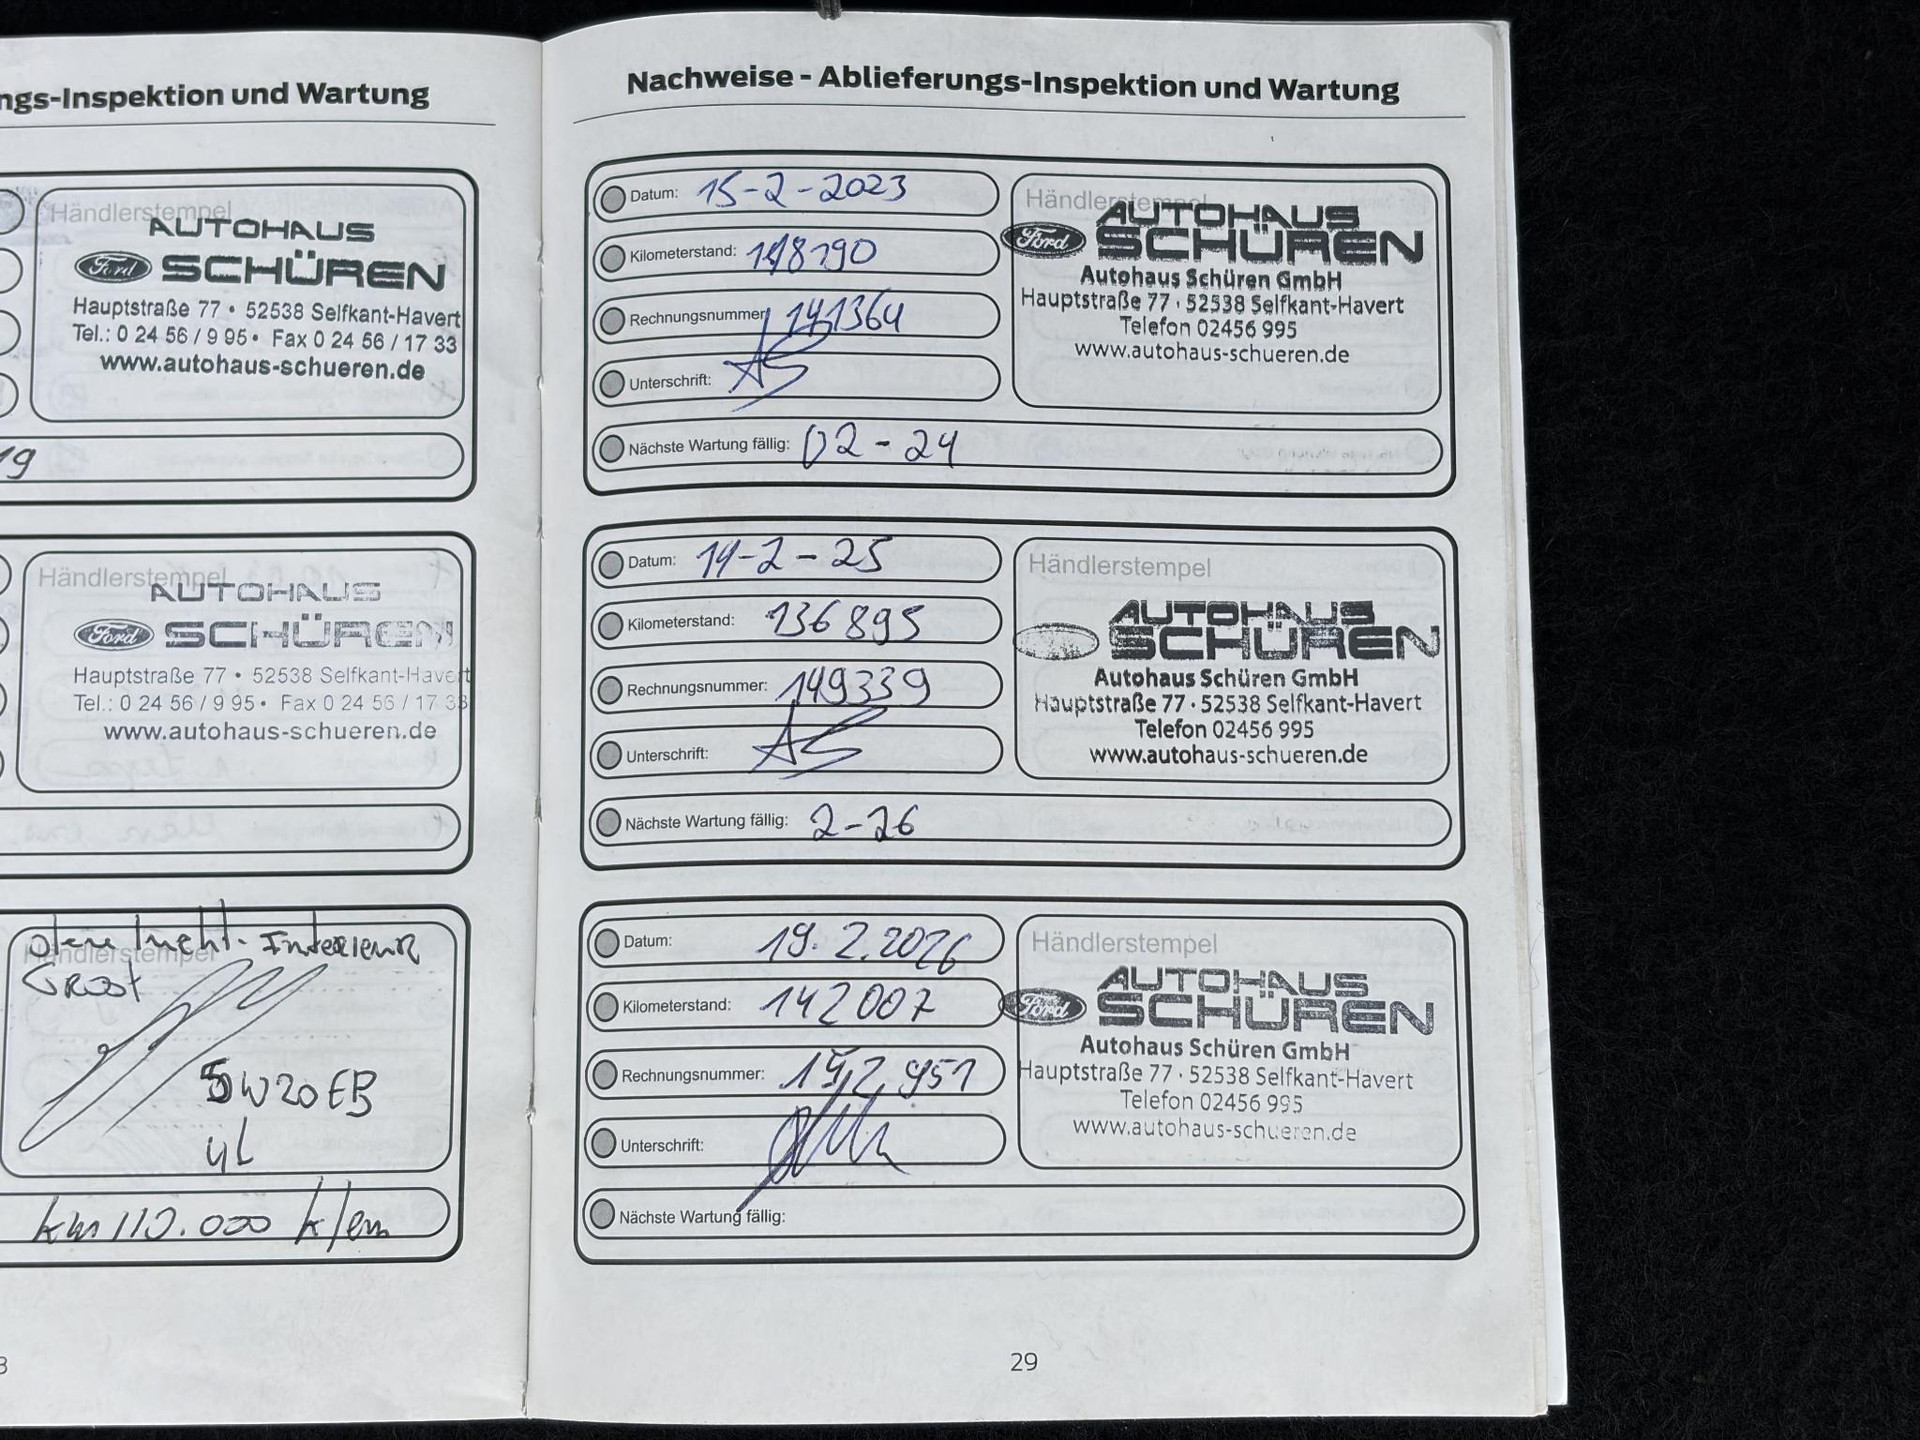 ngs-Inspektion und Wartung
Händlerstempel
AUTOHAUS
Ford SCHÜREN
Hauptstraße 77 • 52538 Selfkant-Havert
Tel.: 0 24 56 / 9 95 • Fax 0 24 56 / 17 33
www.autohaus-schueren.de
19
Händlerstempel
AUTOHAUS
Ford SCHÜREN
Hauptstraße 77 • 52538 Selfkant-Havert
Tel.: 0 24 56 / 9 95 • Fax 0 24 56 / 17 33
www.autohaus-schueren.de
Händlerstempel
GROOT
5W20EB
4L
Nachweise - Ablieferungs-Inspektion und Wartung
Datum: 15-2-2023
Kilometerstand:
Rechnungsnummer: 141364
Unterschrift:
Nächste Wartung fällig: 02-24
Händlerstempel
AUTOHAUS
Ford SCHÜREN
Autohaus Schüren GmbH
Hauptstraße 77 · 52538 Selfkant-Havert
Telefon 02456 995
www.autohaus-schueren.de
Datum: 14-2-25
Kilometerstand: 136895
Rechnungsnummer: 149339
Unterschrift:
Nächste Wartung fällig: 2-26
Händlerstempel
AUTOHAUS
SCHÜREN
Autohaus Schüren GmbH
Hauptstraße 77 · 52538 Selfkant-Havert
Telefon 02456 995
www.autohaus-schueren.de
Datum: 19.2.2026
Kilometerstand: 142007
Rechnungsnummer: 152951
Unterschrift:
Nächste Wartung fällig:
Händlerstempel
AUTOHAUS
Ford SCHÜREN
Autohaus Schüren GmbH
Hauptstraße 77 · 52538 Selfkant-Havert
Telefon 02456 995
www.autohaus-schueren.de
29